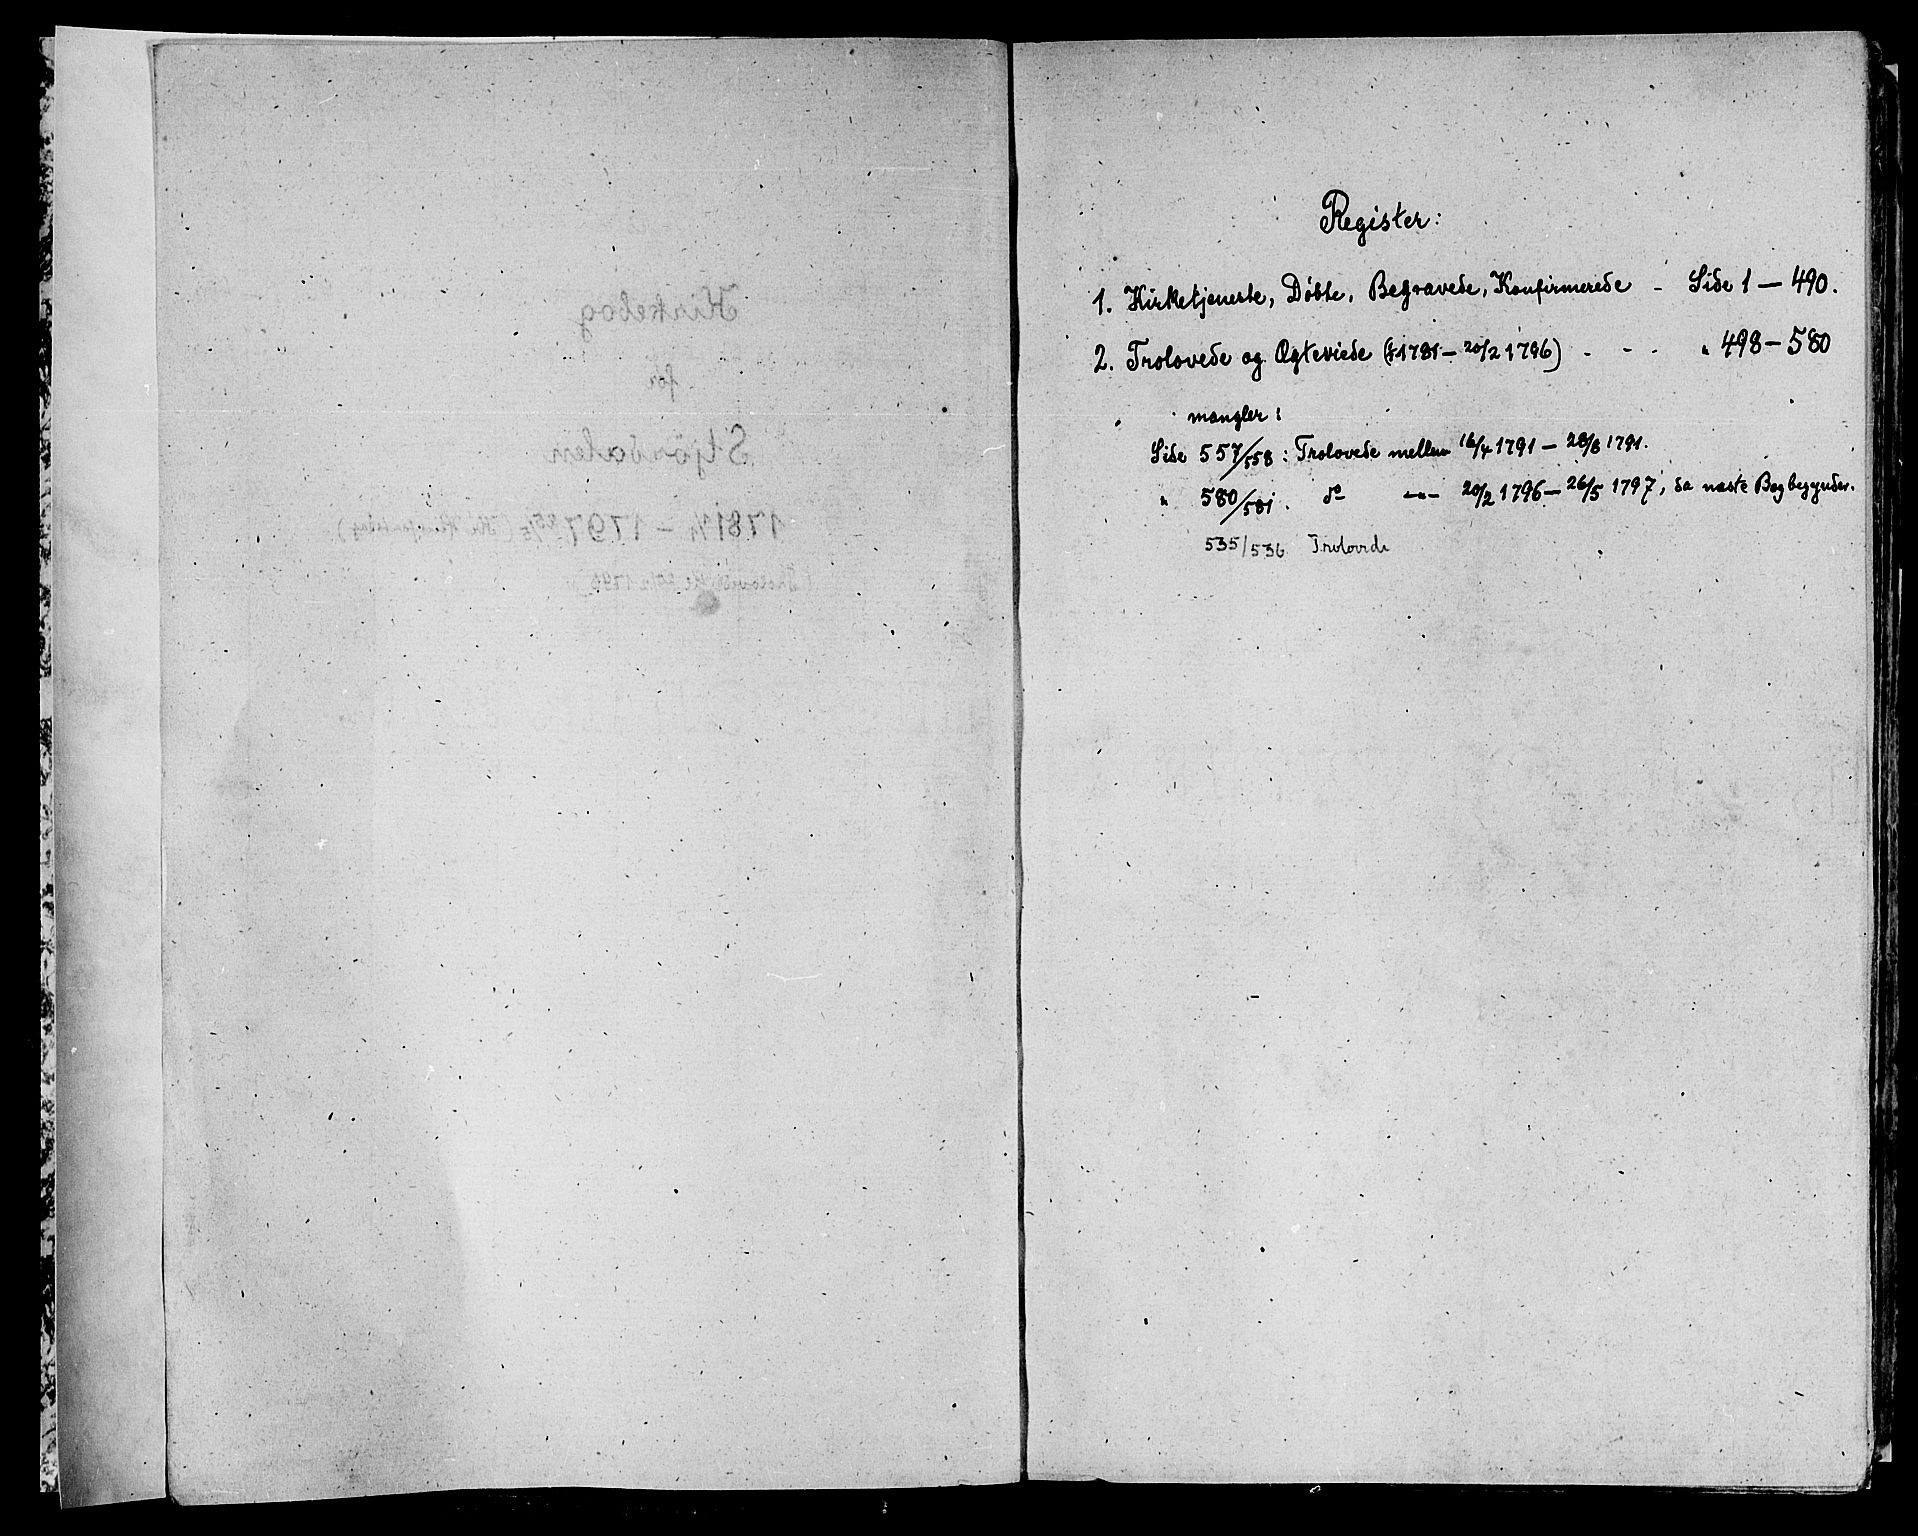 Kirkebog
for
Stjørdalen
1781 1/1 – 1797
Register:
1. Kirketjeneste, Döbte, Begravede, Konfirmerede - Side 1 — 490.
2. Trolovede og Ægteviede (1781 — 20/2 1796) - - - " 498 — 580
mangler:
Side 557/558 : Trolovede mellem 16/4 1791 — 28/8 1791.
" 580/581. do —"— 20/2 1796 — 26/5 1797, da næste Bog begynder.
535/536 Trolovede